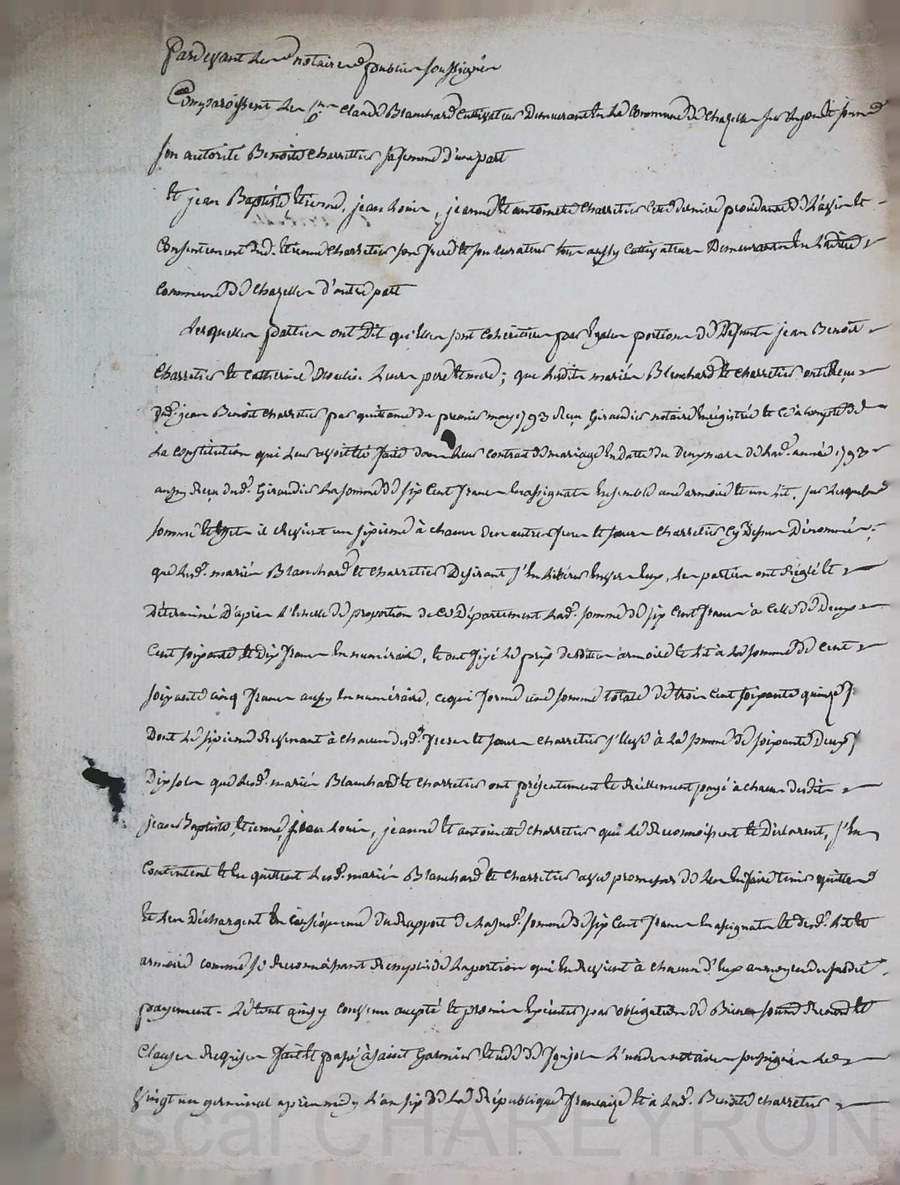 Pardevant les notaires publics soussignés
Comparoissent les cns Claude Blanchard cultivateur demeurant en la commune de Chazelles sur Lyon et sous
son autorité Benoite Charretier sa femme d'une part
et jean Baptiste, etienne, jean Louis, jeanne et antoinette Charretier cette derniere procedante de l'avis et
consentement dud. etienne Charretier son frere et son curateur tous aussy cultivateurs demeurants en ladite
commune de Chazelles d'autre part
Lesquelles parties ont dit qu'elles sont coheritieres par egales portions de defunts jean Benoit
Charretier et Catherine leurs pere et mere; que lesdits mariés Blanchard et Charretier ont reçu
dud. jean Benoit Charretier par quittance du premier may 1793 reçu Giraudier notaire enregistrée et ce à compte de
la constitution qui leur avoit été faite dans leur contrat de mariage en datte du deux mars de lad. année 1793
aussy reçu dud. Giraudier la somme de six cent francs en assignats ensemble une armoire et un lit, sur lesquels
somme et effets il revient un sixieme à chacun des autres freres et sœurs Charretier cy dessus dénommés;
que lesd. mariés Blanchard et Charretier desirant s'en libérer envers eux, les parties ont réglé et
déterminé d'après l'échelle de proportion de ce département lad. somme de six cent francs à celle de deux
cent soixante et dix francs en numéraire, et ont fixé le prix desdits armoire et lit à la somme de cent
soixante cinq francs aussy en numéraire, ce qui forme une somme totale de trois cent soixante quinze f.
dont le sixieme revenant à chacun desd. freres et sœurs Charretier s'eleve à la somme de soixante deux f
dix sols que lesd. mariés Blanchard et Charretier ont présentement et réellement payé à chacun desdits
jean Baptiste, etienne, jean Louis, jeanne et antoinette Charretier qui le reconnoissent et déclarent, s'en
contentent et en quittent lesd. mariés Blanchard et Charretier avec promesse de les en faire tenir quittes
et les déchargent en conséquence du rapport de lasusd. somme de six cent francs en assignats et desd. lit et
armoire comme se reconnoissant remplis de la portion qui en revient à chacun d'eux au moyen du susdit
payement. Le tout ainsy convenu accepté et promis executer par obligation de biens soumd renond et
clauses requises fait et passé à Saint Galmier etude de l'un des notaires soussignés le
vingt un germinal après midy l'an six de la République française et a lad. Benoite Charretier
Pascal CHAREYRON